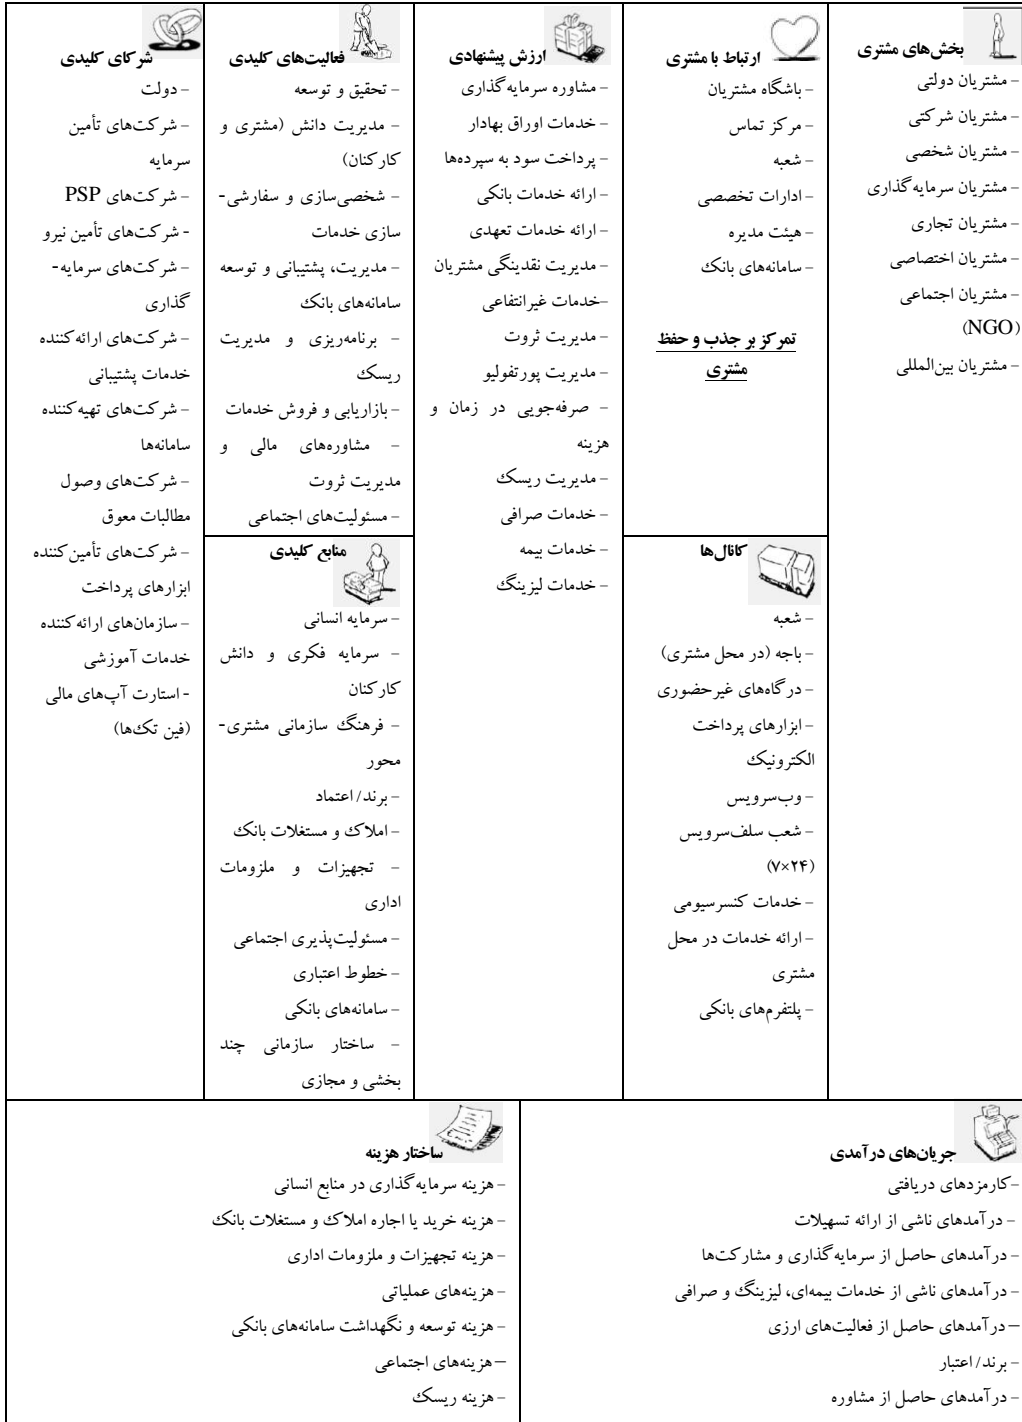 بخش‌های مشتری
- مشتریان دولتی
- مشتریان شرکتی
- مشتریان شخصی
- مشتریان سرمایه‌گذاری
- مشتریان تجاری
- مشتریان اختصاصی
- مشتریان اجتماعی
(NGO)
- مشتریان بین‌المللی
ارتباط با مشتری
- باشگاه مشتریان
- مرکز تماس
- شعبه
- ادارات تخصصی
- هیئت مدیره
- سامانه‌های بانک
تمرکز بر جذب و حفظ
مشتری
کانال‌ها
- شعبه
- باجه (در محل مشتری)
- درگاه‌های غیرحضوری
- ابزارهای پرداخت
الکترونیک
- وب‌سرویس
- شعب سلف‌سرویس
(۷×۲۴)
- خدمات کنسرسیومی
- ارائه خدمات در محل
مشتری
- پلتفرم‌های بانکی
ارزش پیشنهادی
- مشاوره سرمایه‌گذاری
- خدمات اوراق بهادار
- پرداخت سود به سپرده‌ها
- ارائه خدمات بانکی
- ارائه خدمات تعهدی
- مدیریت نقدینگی مشتریان
-خدمات غیرانتفاعی
- مدیریت ثروت
- مدیریت پورتفولیو
- صرفه‌جویی در زمان و
هزینه
- مدیریت ریسک
- خدمات صرافی
- خدمات بیمه
- خدمات لیزینگ
فعالیت‌های کلیدی
- تحقیق و توسعه
- مدیریت دانش (مشتری و
کارکنان)
- شخصی‌سازی و سفارشی-
سازی خدمات
- مدیریت، پشتیبانی و توسعه
سامانه‌های بانک
- برنامه‌ریزی و مدیریت
ریسک
- بازاریابی و فروش خدمات
- مشاوره‌های مالی و
مدیریت ثروت
- مسئولیت‌های اجتماعی
منابع کلیدی
- سرمایه انسانی
- سرمایه فکری و دانش
کارکنان
- فرهنگ سازمانی مشتری-
محور
- برند/ اعتماد
- املاک و مستغلات بانک
- تجهیزات و ملزومات
اداری
- مسئولیت‌پذیری اجتماعی
- خطوط اعتباری
- سامانه‌های بانکی
- ساختار سازمانی چند
بخشی و مجازی
شرکای کلیدی
- دولت
- شرکت‌های تأمین
سرمایه
- شرکت‌های PSP
- شرکت‌های تأمین نیرو
- شرکت‌های سرمایه-
گذاری
- شرکت‌های ارائه‌کننده
خدمات پشتیبانی
- شرکت‌های تهیه‌کننده
سامانه‌ها
- شرکت‌های وصول
مطالبات معوق
- شرکت‌های تأمین‌کننده
ابزارهای پرداخت
- سازمان‌های ارائه‌کننده
خدمات آموزشی
- استارت آپ‌های مالی
(فین تک‌ها)
جریان‌های درآمدی
-کارمزدهای دریافتی
- درآمدهای ناشی از ارائه تسهیلات
- درآمدهای حاصل از سرمایه‌گذاری و مشارکت‌ها
- درآمدهای ناشی از خدمات بیمه‌ای، لیزینگ و صرافی
– درآمدهای حاصل از فعالیت‌های ارزی
- برند/ اعتبار
- درآمدهای حاصل از مشاوره
ساختار هزینه
- هزینه سرمایه‌گذاری در منابع انسانی
- هزینه خرید یا اجاره املاک و مستغلات بانک
- هزینه تجهیزات و ملزومات اداری
- هزینه‌های عملیاتی
- هزینه توسعه و نگهداشت سامانه‌های بانکی
– هزینه‌های اجتماعی
- هزینه ریسک